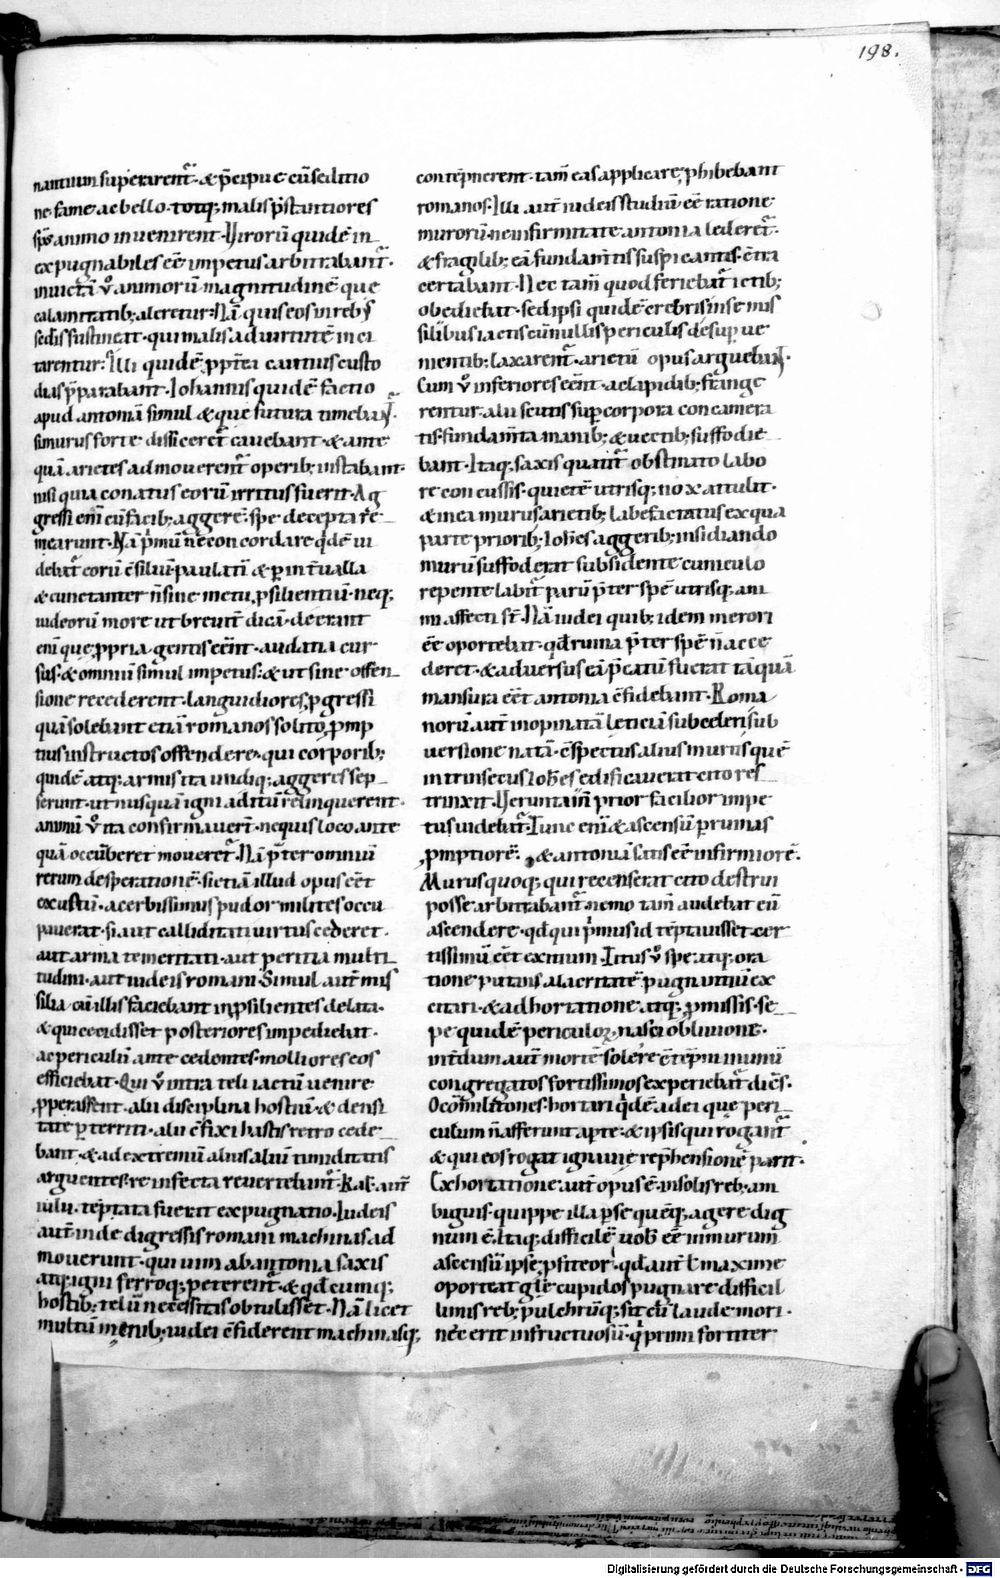 198.
nantium superarent᷑. & p̄cipue cū seditio
ne. fame ac bello. totq; malis p̄stantiores
sp̄s animo inuenirent. Virorū quidē in
expugnabiles eē impetus arbitrabant᷑.
inuictā v̊ animorū magnitudinē que
calamitatib; aleretur. Nā quis eos in reb;
sedis sustineat. qui malis ad uirtutē inci
tarentur: Illi quidē ꝓpt̄ea cautius custo
dias p̄parabant. Iohannis quidē factio
apud antoniā simul & que futura timebat᷑.
si murus forte dissiceret᷑ cauebant. & ante
quā arietes admouerent᷑ operib; instabant.
nisi quia conatus eorū irritus fuerit. Ag
gressi eni cū facib; aggerē. spe decepta re
mearunt. Nā p̍mū n̄ concordare q̍dē ui
debat᷑ eorū c̄siliū. paulatī & ꝑ int̄ualla
& cunctanter n̄ sine metu ꝓsilientiū. neq;
iudeorū more ut breuit̄ dicā. deerant
eni que ꝓpria gentis eēnt. audatia cur
sus. & omniū simul impetus. & ut sine offen
sione recederent. Languidiores ꝓgressi
quā solebant etiā romanos solito ꝓmp
tius instructos offendere. qui corporib;
quidē atq; armis ita undiq; aggeres sep
serunt. ut nusquā igni aditū relinquerent.
animū v̊ ita confirmauert̄. ne quis loco ante
quā occūberet moueret᷑. Nā p̄ter omniū
rerum desperationē. si etiā illud opus eēt
exustū. acerbissimus pudor milites occu
pauerat. si aut calliditati uirtus cederet.
aut arma temeritati. aut peritia multi
tudini. aut iudeis romani. Simul aut̄ mis
silia cū illis faciebant in ꝓsilientes delata.
& qui cecidisset posteriores impediebat.
ac periculū ante cedentes. molliores eos
efficiebat. Qui v̊ intra teli iactū uenire
ꝓperassent. alii disciplina hostiū. & densi
tate ꝑterriti. alii c̄fixi hastis retro cede
bant. & ad extremū alius aliū timiditatis
arguentes. re infecta reuertebant᷑. Kal. aut̄
iulii. tēptata fuerit expugnatio. Iudeis
aut̄ inde digressis romani machinas ad
mouerunt. qui uim ab antonia saxis
atq; igni ferroq; peterent᷑. & qd̄cumq;
hostib; telū necessitas obtulisset. Nā licet
multū menib; iudei c̄fiderent machinasq;
contēpnerent. tam̄ eas applicare ꝓhibebant
romanos. Illi aut̄ iudeis studiū eē ratione
murorū. ne infirmitate antonia lederet᷑.
& fragilib; eā fundam̄tis suspicantes. c̄tra
certabant. Nec tam̄ quod feriebat᷑ ictib;
obediebat. sed ipsi quidē crebris in se mis
silibus iactis cū nullis periculis desuper ue
nientib; laxarent᷑. arietū opus arguebat᷑.
Cum v̊ inferiores eēnt. ac lapidib; frange
rentur. alii scutis sup̄ corpora concamera
tis fundam̄ta manib; & uectib; suffodie
bant. Itaq; saxis quatuor obstinato labo
re concussis. quietē utrisq; nox attulit.
& in ea murus arietib; labefactatus ex qua
parte priorib; Ioh̄es aggerib; insidiando
murū suffoderat subsidente cuniculo
repente labit᷑. parū p̄ter spē utrisq; ani
mi affecti st̄. Nā iudei quib; idem merori
eē oportebat. qd̄ ruina p̄ter spē n̄ acce
deret. & aduersus eā p̄catū fuerat tāquā
mansura eēt antonia c̄fidebant. Roma
norū aut̄ inopinatā leticiā subcedens sub
uersione natā. c̄spectus alius murus quē
intrinsecus Ioh̄es edificauerat cito res
trinxit. Veruntam̄ prior facilior impe
tus uidebat᷑. Tunc enī & ascensū ꝑ ruinas
ꝓmptiorē. & antoniā satis eē infirmiorē.
Murus quoq; qui recens erat cito destrui
posse arbitrabant᷑. nemo tam̄ audebat eū
ascendere. qd̄ qui p̍mus id tēptauisset. cer
tissimū eēt exitium. Titus v̊ spe atq; ora
tione putans alacritatē pugnantiū ex
citari. & adhortatione atq; ꝓmissis. se
pe quidē periculoꝝ nasci obliuionē.
int̄dum aut̄ mortē solere c̄tēpni. in unū
congregatos fortissimos experiebat᷑ dicēs.
O com̄ilitones. hortari q̍dē ad ei que peri
culum n̄ afferunt aꝑte. & ipsis qui rogant᷑
& qui eos rogat ignauie repr̄hensionē parit.
Exhortatione aut̄ opus ē. in solis reb; am
biguis. quippe illa ꝑ se quēq; agere dig
num ē. Itaq; difficilē uob̄ eē in murum
ascensū ipse ꝓfiteor. qd̄ aut̄ t̄ maxime
oporteat gl̄e cupidos pugnare. difficil
limis reb; pulchrūq; sit cū laude mori.
nec erit infructuosū. q̍ primi fortiter
Digitalisierung gefördert durch die Deutsche Forschungsgemeinschaft - DFG